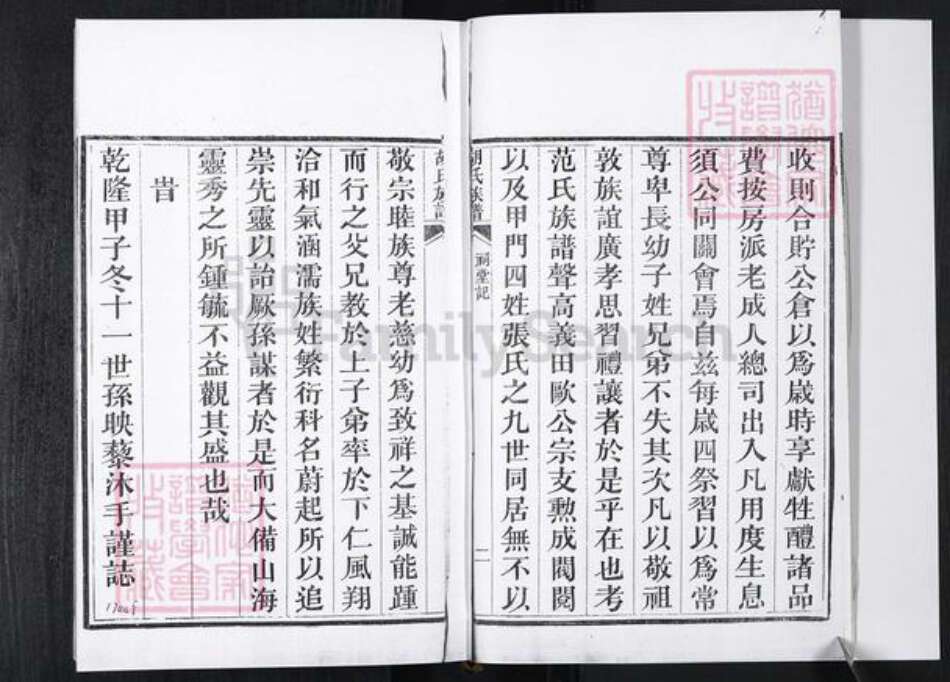 收則合貯公倉以爲歲時享獻牲醴諸品
費按房派老成人總司出入凡用度生息
須公同闔會焉自茲每歲四祭習以爲常
尊卑長幼子姓兄弟不失其次凡以敬祖
敦族誼廣孝思習禮讓者於是乎在也考
范氏族譜聲高義田歐公宗支勲成閥閱
以及甲門四姓張氏之九世同居無不以
胡氏族譜
祠堂記
二
敬宗睦族尊老慈幼爲致祥之基誠能踵
而行之父兄教於上子弟率於下仁風翔
洽和氣涵濡族姓繁衍科名蔚起所以追
崇先靈以詒厥孫謀者於是而大備山海
靈秀之所鍾毓不益觀其盛也哉
旹
乾隆甲子冬十一世孫映藜沐手謹誌
FamilySearch